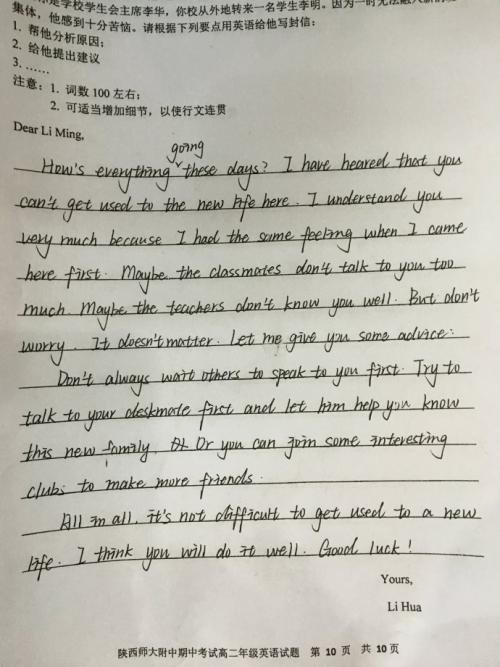 你是学校学生会主席李华，你校从外地转来一名学生李明。因为一时无法融入新的
集体，他感到十分苦恼。请根据下列要点用英语给他写封信：
1. 帮他分析原因；
2. 给他提出建议
3. ……
注意：1. 词数 100 左右；
2. 可适当增加细节，以使行文连贯
Dear Li Ming,
going
How's everything ∨ these days? I have heared that you
can't get used to the new life here. I understand you
very much because I had the same feeling when I came
here first. Maybe the classmates don't talk to you too
much. Maybe the teachers don't know you well. But don't
worry. It doesn't matter. Let me give you some advice:
Don't always wait others to speak to you first. Try to
talk to your deskmate first and let him help you know
this new family. Or you can join some interesting
clubs to make more friends.
All in all, it's not difficult to get used to a new
life. I think you will do it well. Good luck!
Yours,
Li Hua
陕西师大附中期中考试高二年级英语试题 第 10 页 共 10 页